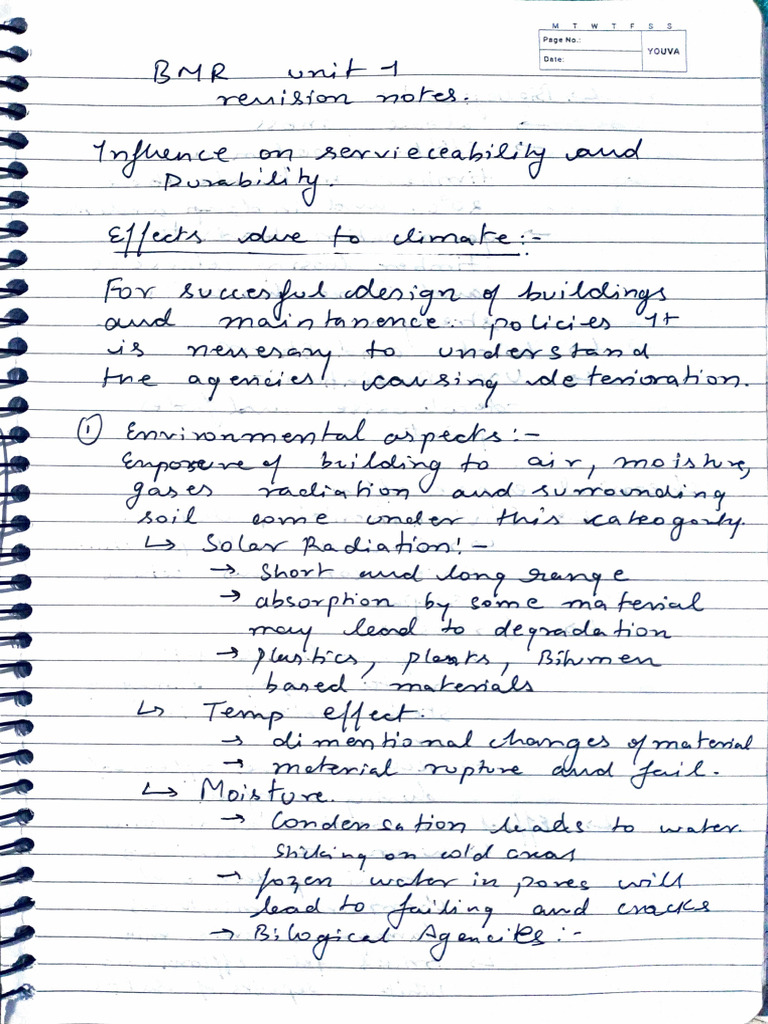 M T W T F S S
Page No.:
YOUVA
Date:
BMR unit 1
revision notes.
Influence on servieceability and
Durability.
Effects due to climate:-
For succesful design of buildings
and maintanence policies It
is nessesary to understand
the agencies causing deterioration.
① Environmental aspects:-
Exposure of building to air, moisture,
gases radiation and surrounding
soil come under this categorty.
↳ Solar Radiation:-
→ Short and long range
→ absorption by some material
may lead to degradation
→ plastics, plants, Bitumen
based materials
↳ Temp effect.
→ dimentional changes of material
→ material rupture and fail.
↳ Moisture.
→ Condensation leads to water
sticking on cold areas
→ fozen water in pores will
lead to failing and cracks
→ Bilogical Agencies:-